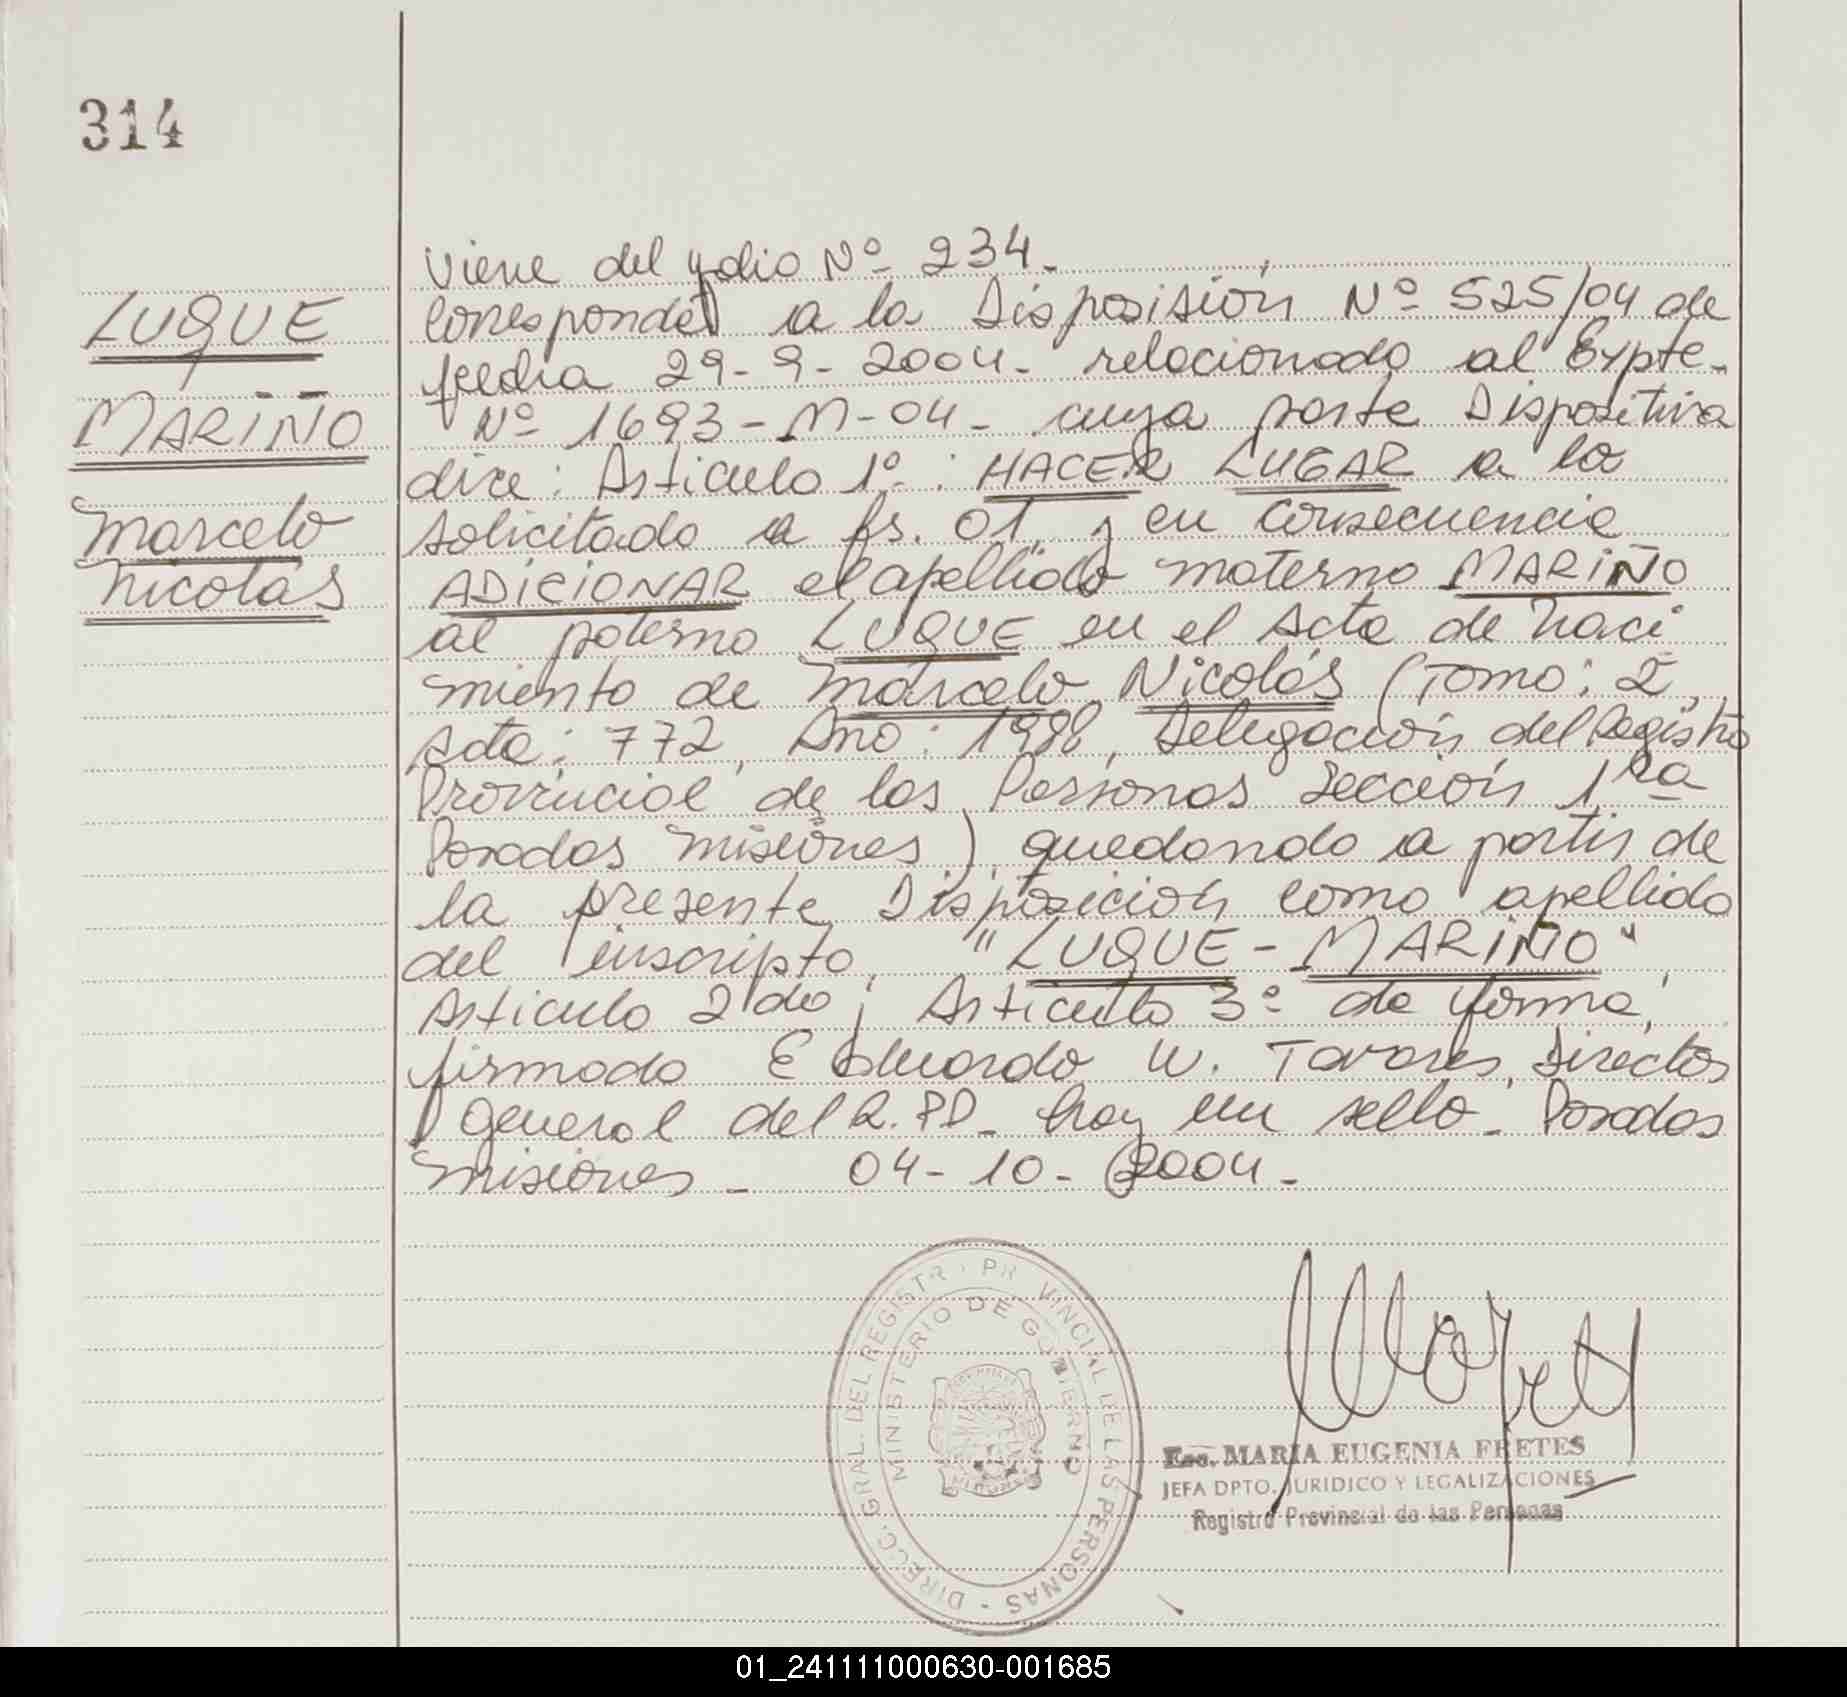 314
LUQUE
MARIÑO
Marcelo
Nicolás
Viene del folio Nº 234.-
Corresponde a la Disposisión Nº 525/04 de
fecha 29-9-2004- relacionado al Expte-
Nº 1693-M-04- cuya parte Dispositiva
dice: Articulo 1º: HACER LUGAR a lo
solicitado a fs. 01, y en consecuencia
ADICIONAR el apellido materno MARIÑO
al paterno LUQUE en el Acta de Naci
miento de Marcelo Nicolás (Tomo: 2,
Acta: 772, Ano: 1998, Delegación del Registro
Provincial de las Personas Sección 1ra
Posadas Misiones), quedando a partir de
la presente Disposición como apellido
del inscripto, "LUQUE-MARIÑO",
Articulo 2do; Articulo 3º de forma,
firmado Eduardo W. Tavares, Director
general del R.PD- hay un sello- Posadas
Misiones - 04-10-2004-
DIRECC. GRAL. DEL REGISTR PR VINCIAL DE LAS PERSONAS -
MINISTERIO DE GOBIERNO
Esc. MARIA EUGENIA FRETES
JEFA DPTO. JURIDICO Y LEGALIZACIONES
Registro Provincial de las Personas
01_241111000630-001685